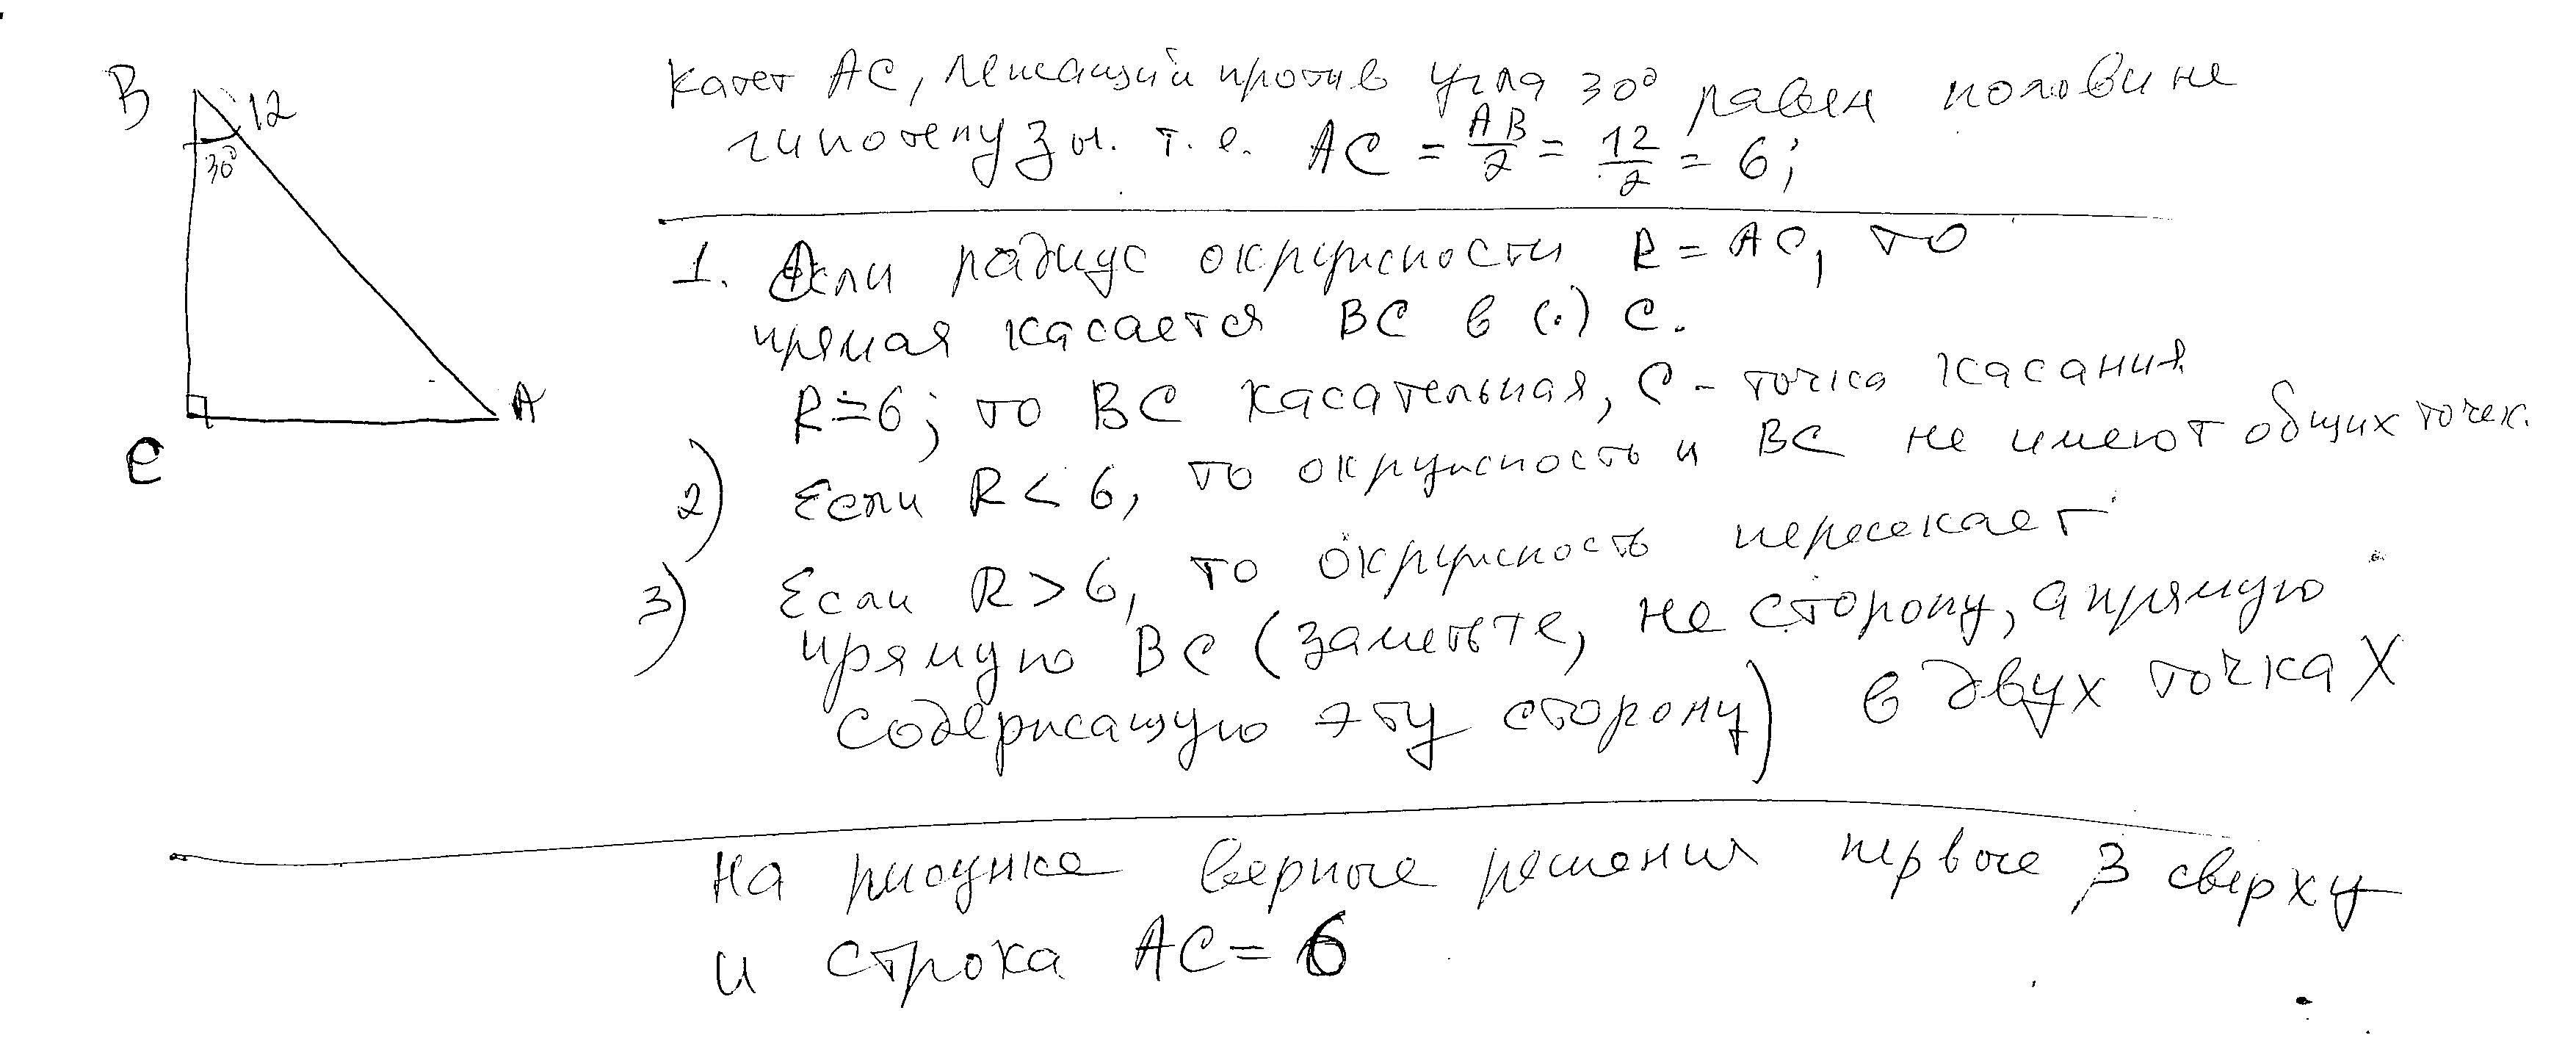 B
12
30°
C
A
Катет AC, лежащий против угла 30° равен половине
гипотенузы. т.е. AC = AB/2 = 12/2 = 6;
1. Если радиус окружности R = AC, то
прямая касается BC в (·) C.
R = 6; то BC касательная, C - точка касания
2) Если R < 6, то окружность и BC не имеют общих точек.
3) Если R > 6, то окружность пересекает
прямую BC (заметьте, не сторону, а прямую
содержащую эту сторону) в двух точках
На рисунке верные решения первые 3 сверху
и строка AC = 6